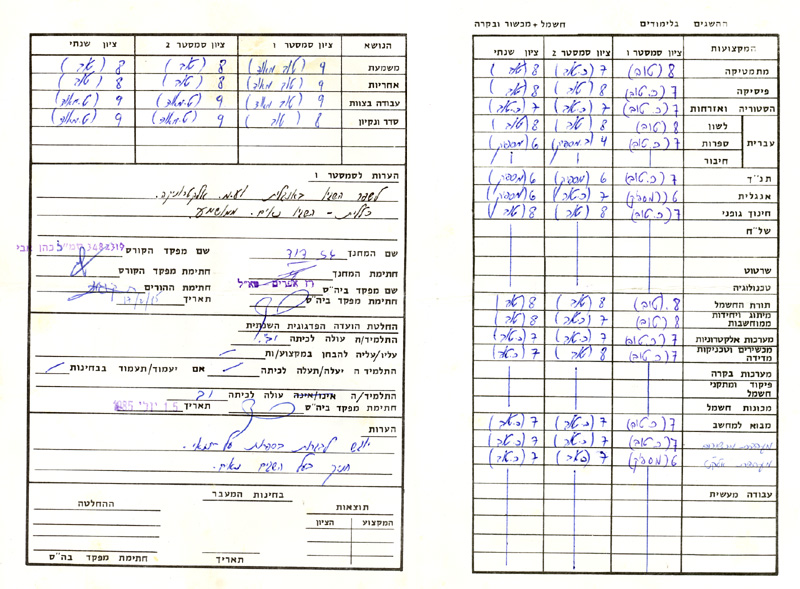 ההשגים בלימודים
חשמל + מכשור ובקרה
המקצועות ציון סמסטר 1 ציון סמסטר 2 ציון שנתי
מתמטיקה 8 (טוב) 7 (כ.טוב) 8 (טוב)
פיסיקה 7 (כ.טוב) 8 (טוב) 8 (טוב)
הסטוריה ואזרחות 7 (כ.טוב) 7 (כ.טוב) 7 (כ.טוב)
עברית
לשון 8 (טוב) 8 (טוב) 8 (טוב)
ספרות 7 (כ.טוב) 4 6 (מספיק)
חיבור
תנ"ך 7 (כ.טוב) 6 (מספיק) 6 (מספיק)
אנגלית 6 (מספיק) 7 (כ.טוב) 6 (מספיק)
חינוך גופני 7 (כ.טוב) 8 (טוב) 8 (טוב)
של"ח
שרטוט
טכנולוגיה
תורת החשמל 8 (טוב) 8 (טוב) 8 (טוב)
מיתוג ויחידות ממוחשבות 8 (טוב) 7 (כ.טוב) 8 (טוב)
מערכות אלקטרוניות 7 (כ.טוב) 7 (כ.טוב) 7 (כ.טוב)
מכשירים וטכניקות מדידה 7 (כ.טוב) 8 (טוב) 7 (כ.טוב)
מערכות בקרה
פיקוד ומתקני חשמל
מכונות חשמל
מבוא למחשב 7 (כ.טוב) 7 (כ.טוב) 7 (כ.טוב)
מעבדה 7 (כ.טוב) 7 (כ.טוב) 7 (כ.טוב)
מעבדה 6 (מספיק) 7 (כ.טוב) 7 (כ.טוב)
עבודה מעשית
הנושא ציון סמסטר 1 ציון סמסטר 2 ציון שנתי
משמעת 9 (טוב מאוד) 8 (טוב) 8 (טוב)
אחריות 9 (טוב מאוד) 8 (טוב) 8 (טוב)
עבודה בצוות 9 (טוב מאוד) 9 (ט.מאוד) 9 (ט.מאוד)
סדר ונקיון 8 (טוב) 9 (ט.מאוד) 9 (ט.מאוד)
הערות לסמסטר 1
לשפר השגיו באנגלית אלקטרוניקה.
כללית - השגיו נאים. ממושמע.
שם המחנך דוד
שם מפקד הקורס כהן אבי
חתימת המחנך
חתימת מפקד הקורס
שם מפקד ביה"ס
חתימת ההורים
חתימת מפקד ביה"ס
תאריך
החלטת הועדה הפדגוגית השנתית
התלמיד/ה עולה לכיתה
עליו/עליה להבחן במקצוע/ות
התלמיד ה יעלה/תעלה לכיתה אם יעמוד/תעמוד בבחינות
התלמיד/ה אינו/אינה עולה לכיתה
חתימת מפקד ביה"ס תאריך 15 יולי 1985
הערות
בספרות
השגים נאים.
בחינות המעבר
תוצאות
המקצוע הציון
ההחלטה
תאריך
חתימת מפקד בה"ס